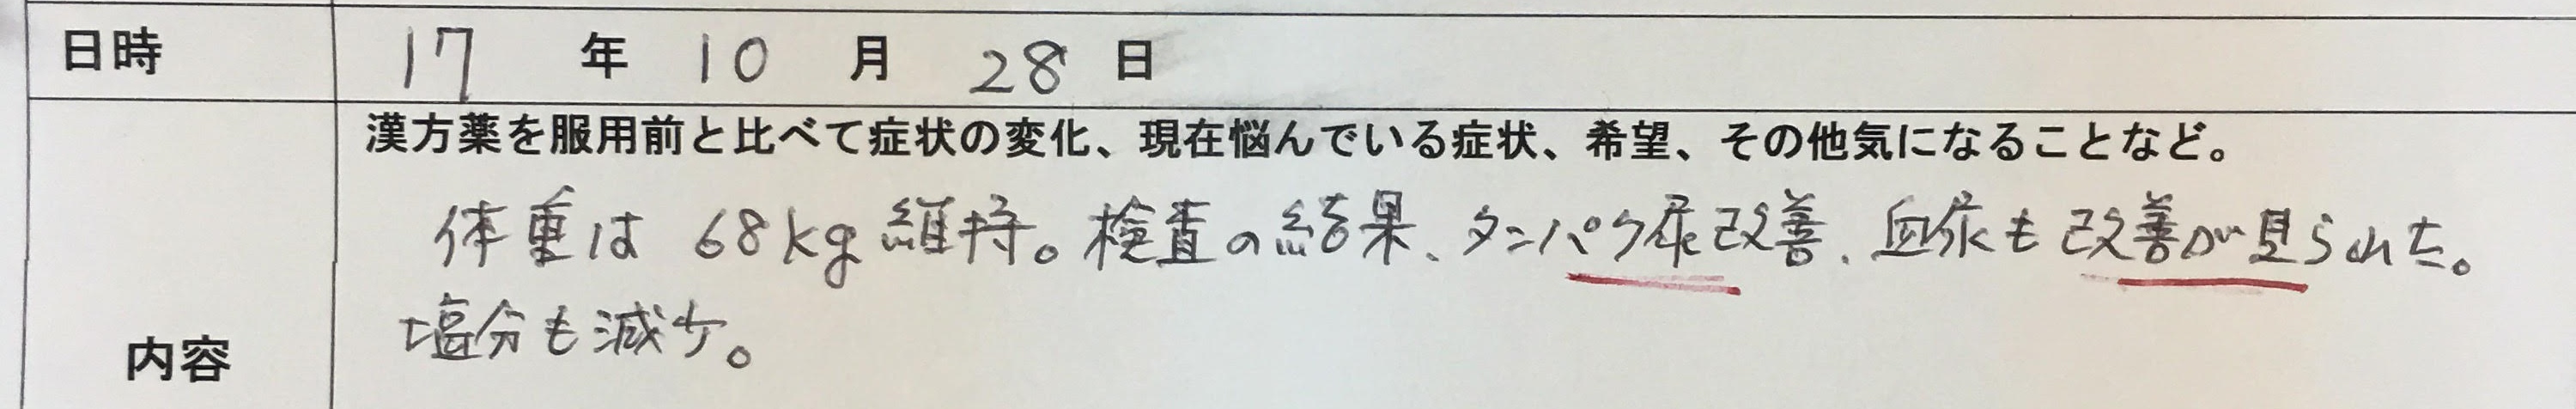 日時 17 年 10 月 28 日
漢方薬を服用前と比べて症状の変化、現在悩んでいる症状、希望、その他気になることなど。
体重は 68kg 維持。検査の結果、タンパク尿改善、血尿も改善が見られた。
塩分も減少。
内容